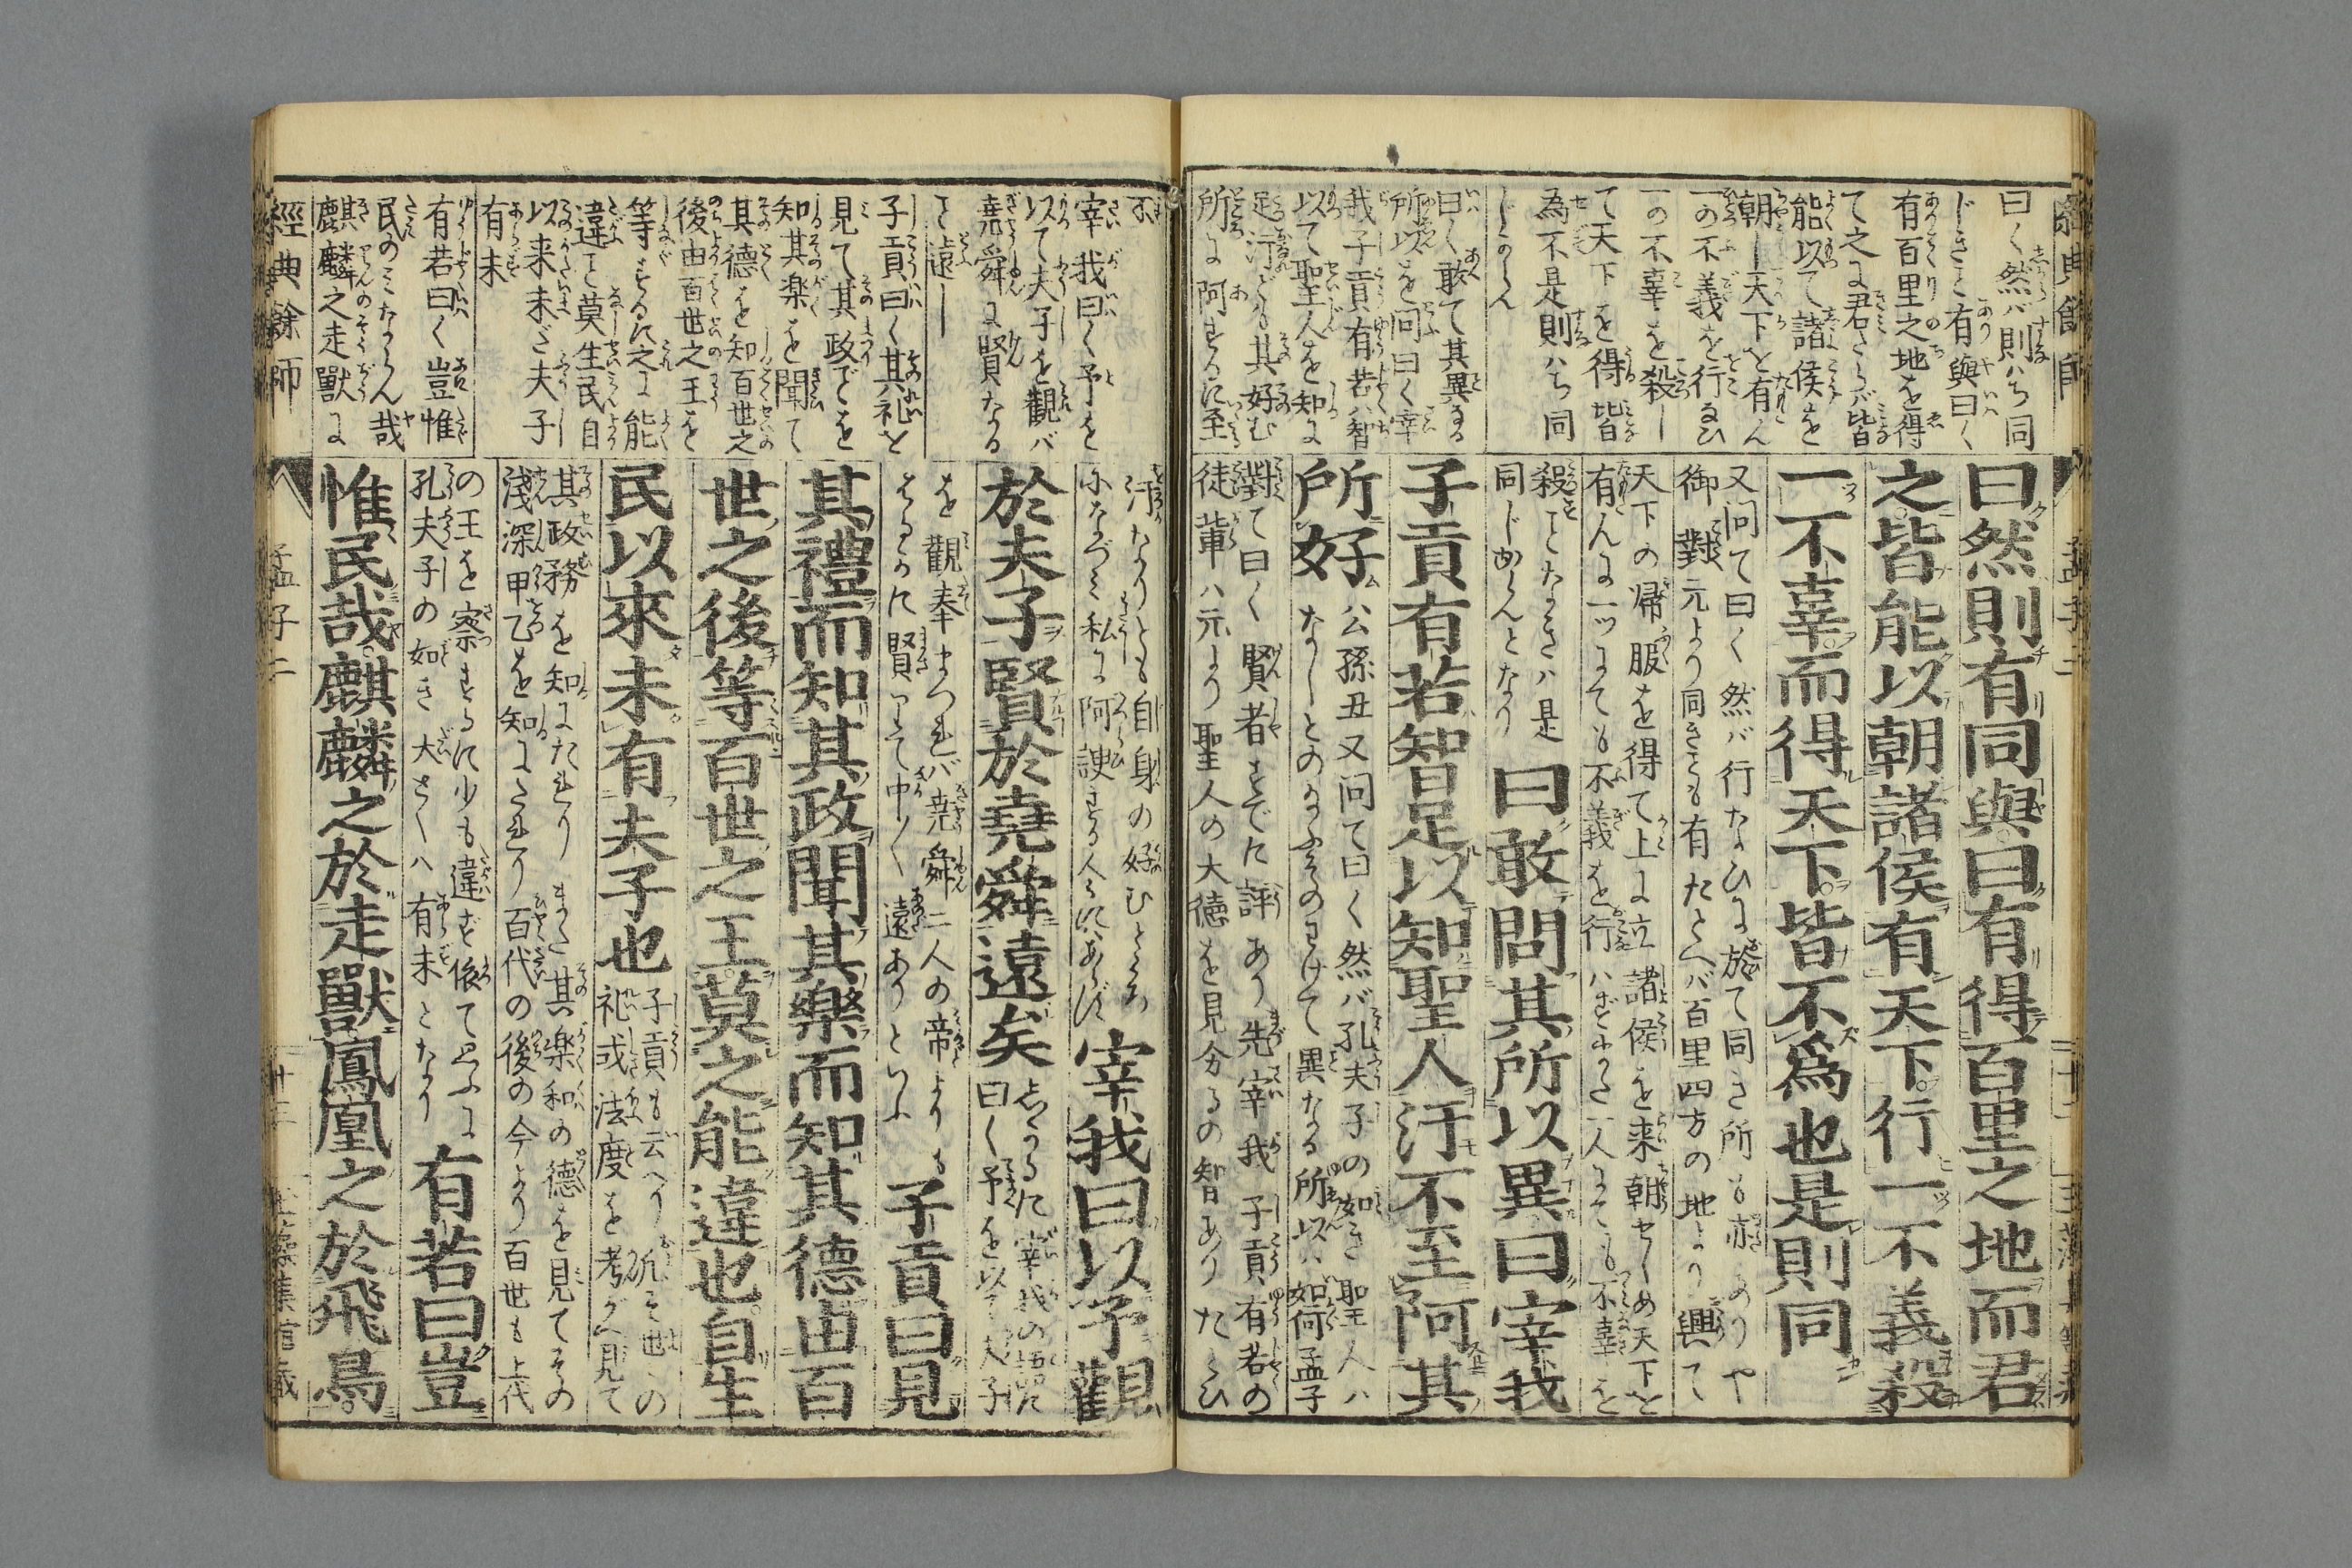 曰く然バ則ハち同
じきこ有與曰く
有百里之地を得
て之に君たらバ皆
能以て諸侯を
朝し天下を有ん
一の不義を行なひ
一の不辜を殺し
て天下を得皆
為不是則ハち同
じからん
曰く敢て其異なる
所以を問曰く宰
我子貢有若ハ智
以て聖人を知に
足汙とも其好む
所に阿するに至
曰然則有同與曰有得百里之地而君
之皆能以朝諸侯有天下行一不義殺
一不辜而得天下皆不爲也是則同
又问て曰く然バ行なひに於て同き所も亦ありや
御對元より同きも有たとへバ百里四方の地より興て
天下の帰服を得て上に立諸侯を来朝せしめ天下を
有んに一ツにても不義を行ハず一人にても不辜を
殺ことなきハ是
同じからんとなり
曰敢問其所以異曰宰我
子貢有若智足以知聖人汙不至阿其
所好
公孫丑又问て曰く然バ孔夫子の如き聖人ハ
異なる所以ハ如何孟子
對て曰く賢者すでに評あり先宰我子貢有若の
徒輩ハ元より聖人の大徳を見分るの智ありたとひ
不
宰我曰く予を
以て夫子を觀バ
堯舜に賢なる
こと遠し
子貢曰く其礼を
見て其政ごを
知其楽を聞て
其德を知百世之
後由百世之王を
等するに之に能
違こと莫生民自
以来未ざ夫子
有未
有若曰く豈惟
民のミならん哉
麒麟之走獸に
汙なりとも自身の好むところ
宰我曰以予觀
於夫子賢於堯舜遠矣
曰く予を以て夫子
を觀奉まつれバ堯舜二人の帝よりも
はるかに賢りて中々遠ありといふ
子貢曰見
其禮而知其政聞其樂而知其德由百
世之後等百世之王莫之能違也自生
民以來未有夫子也
子貢も云へり
礼或法度を考がへ見て
其政務を知にたれりまた其楽和の德を見てその
浅深甲乙を知にたれり百代の後の今より百世も上代
の王を察するに少も違ず
孔夫子の如き大せくハ有未となり
有若曰豈
惟民哉麒麟之於走獸鳳凰之於飛鳥
經典餘師
孟子二